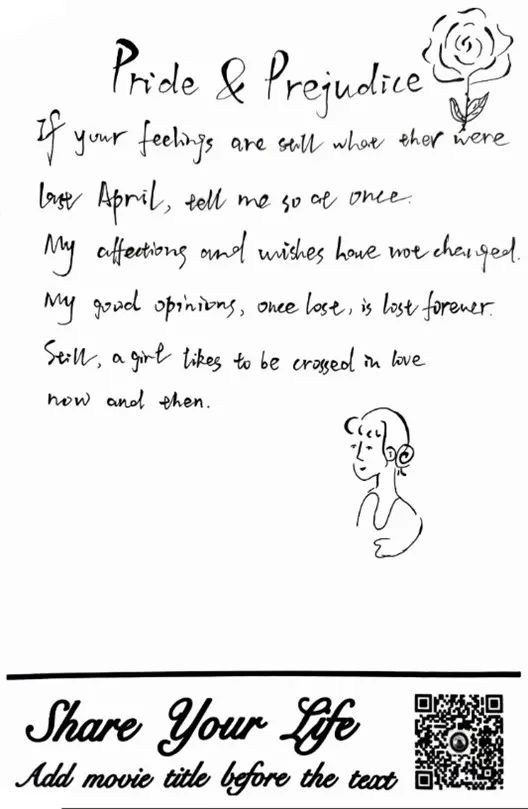 Pride & Prejudice
If your feelings are still what ther were
last April, tell me so at once.
My affections and wishes have not changed.
My good opinions, once lost, is lost forever.
Still, a girl likes to be crossed in love
now and then.
Share Your Life
Add movie title before the text